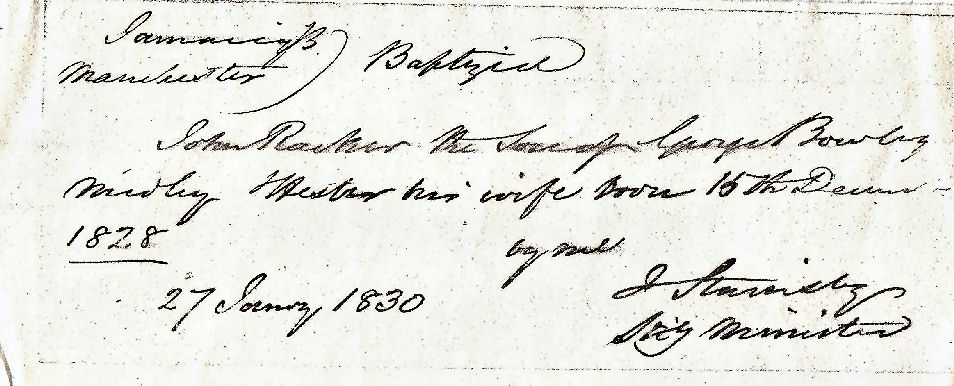 Jamaica SS
Manchester } Baptized
John Racker the Son of George Bowley
Medley & Hester his wife born 15th Decem-
1828
by me
27 Janry 1830
J Stainsby
Minister